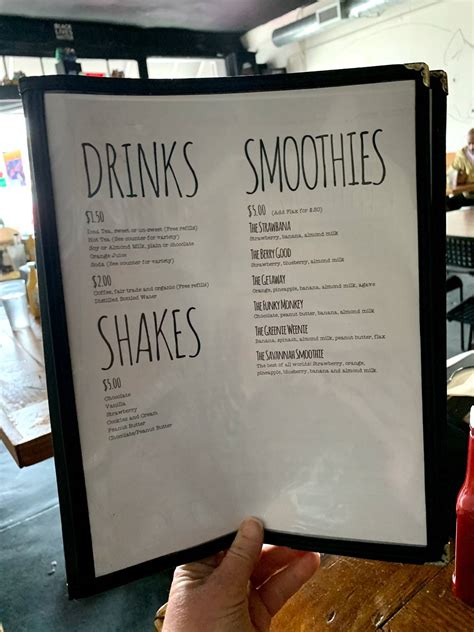 BLACK
LIVES
MATTER
DRINKS
$1.50
Iced Tea, sweet or un-sweet (Free refills)
Hot Tea (See counter for variety)
Soy or Almond Milk, plain or chocolate
Orange Juice
Soda (See counter for variety)
$2.00
Coffee, fair trade and organic (Free refills)
Distilled Bottled Water
SHAKES
$5.00
Chocolate
Vanilla
Strawberry
Cookies and Cream
Peanut Butter
Chocolate/Peanut Butter
SMOOTHIES
$5.00 (Add Flax for $.50)
THE STRAWBANA
Strawberry, banana, almond milk
THE BERRY GOOD
Strawberry, blueberry, almond milk
THE GETAWAY
Orange, pineapple, banana, almond milk, agave
THE FUNKY MONKEY
Chocolate, peanut butter, banana, almond milk
THE GREENIE WEENIE
Banana, spinach, almond milk, peanut butter, flax
THE SAVANNAH SMOOTHIE
The best of all worlds! Strawberry, orange,
pineapple, blueberry, banana and almond milk